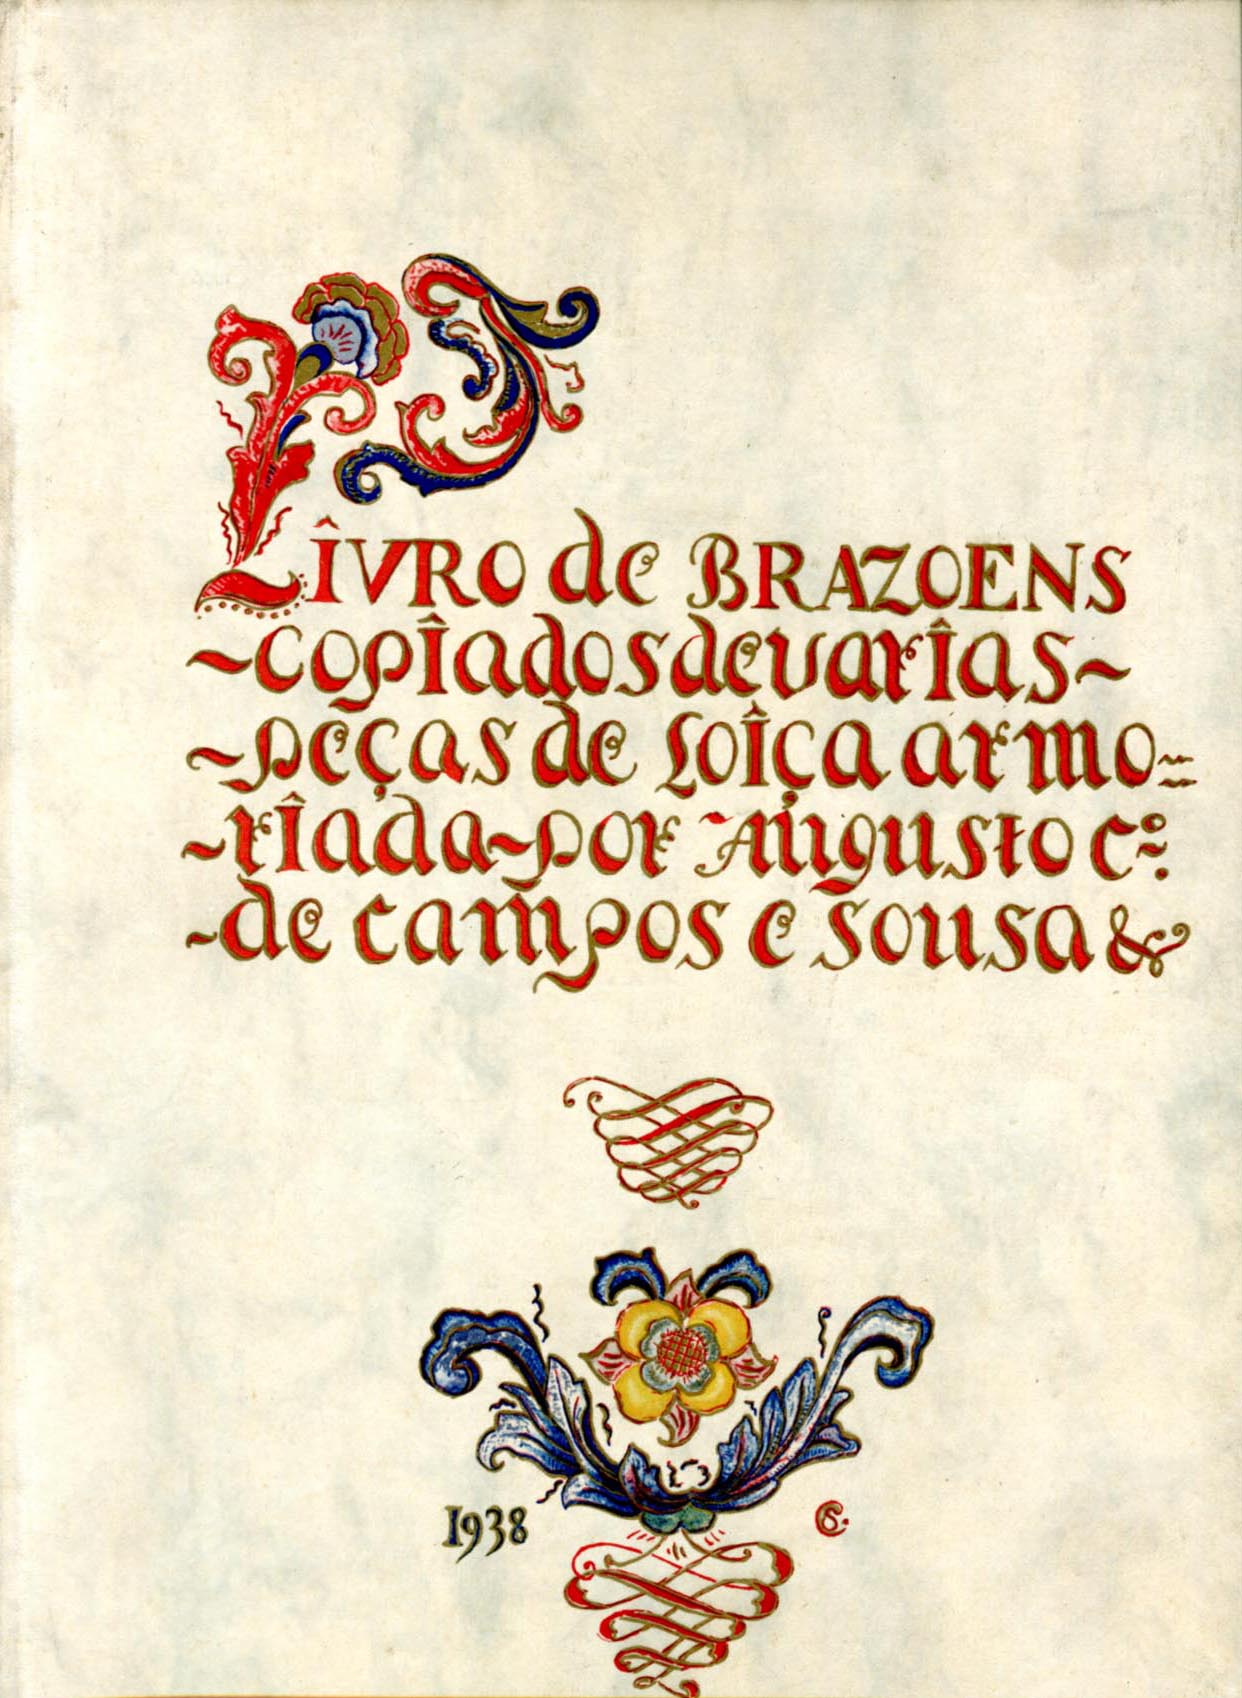 LÎVRO de BRAZOENS
~copîados de varîas~
~peças de loîça armo=
~rîada~por Augusto Cº:
~de Campos e Sousa &
1938
CS.